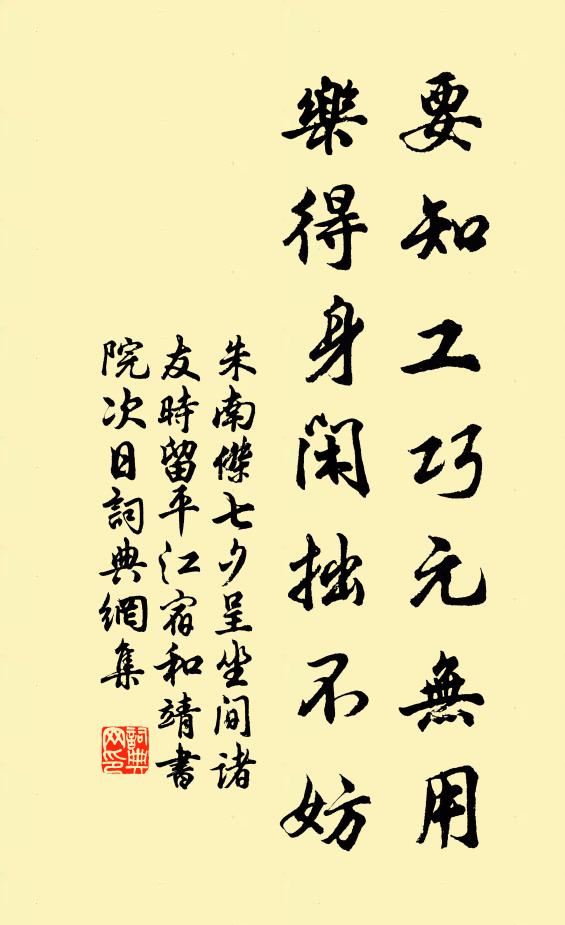 要知工巧元無用
樂得身閑拙不妨
朱南傑七夕呈坐間諸
友時留平江宿和靖書
院次日詞典網集
詞典网印